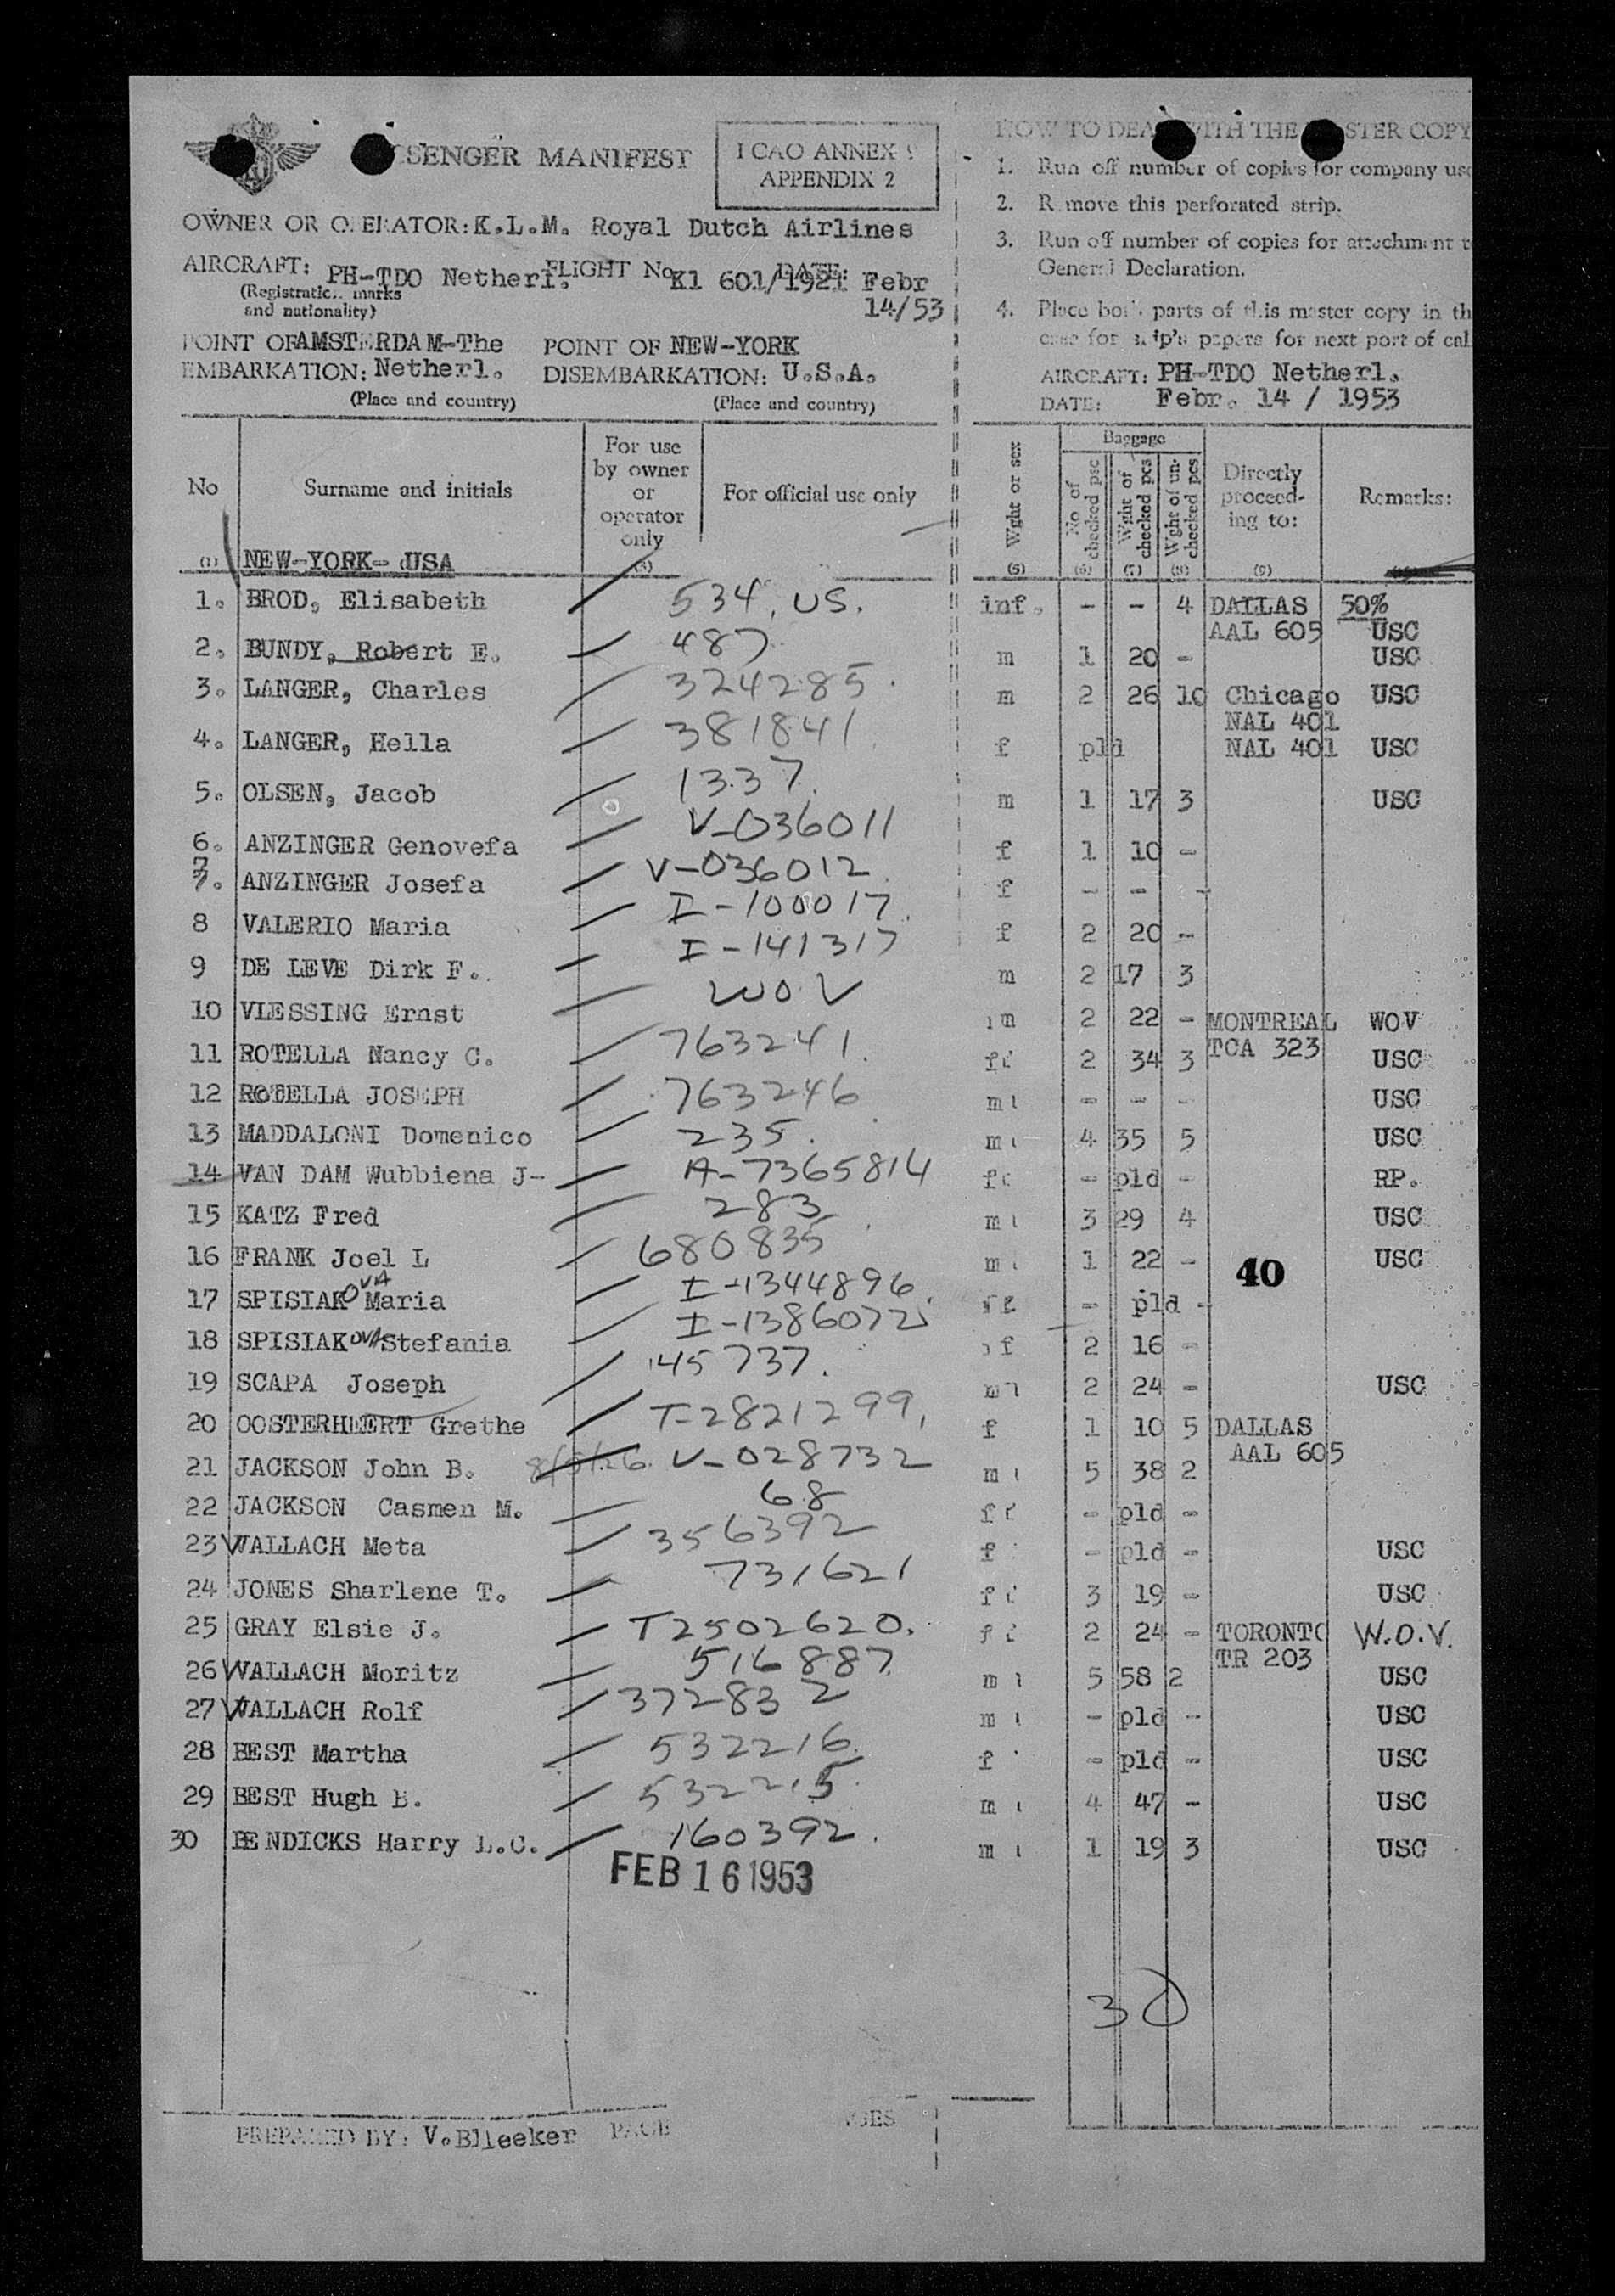 SENGER MANIFEST
I CAO ANNEX 9
APPENDIX 2
OWNER OR OPERATOR: K.L.M. Royal Dutch Airlines
AIRCRAFT: PH-TDO Netherl. FLIGHT No Kl 601/1921 DATE: Febr
(Registration marks
and nationality)
14/53
POINT OF AMSTERDAM-The
EMBARKATION: Netherl.
(Place and country)
POINT OF NEW-YORK
DISEMBARKATION: U.S.A.
(Place and country)
HOW TO DEA WITH THE STER COPY
1. Run off number of copies for company use
2. Remove this perforated strip.
3. Run off number of copies for attachment to
General Declaration.
4. Place both parts of this master copy in th
case for ship's papers for next port of cal
AIRCRAFT: PH-TDO Netherl.
DATE: Febr. 14 / 1953
No
(1)
Surname and initials
For use
by owner
or
operator
only
(3)
For official use only
Wght or sex
(5)
Baggage
No of
checked psc
(6)
Wght of
checked pcs
(7)
Wght of un-
checked pcs
(8)
Directly
proceed-
ing to:
(9)
Remarks:
NEW-YORK- USA
1. BROD, Elisabeth 534, US. inf. - - 4 DALLAS 50%
AAL 605 USC
2. BUNDY, Robert E. 487 m 1 20 - USC
3. LANGER, Charles 324285. m 2 26 10 Chicago USC
NAL 401
4. LANGER, Hella 381841. f pld NAL 401 USC
5. OLSEN, Jacob 1337. m 1 17 3 USC
6. ANZINGER Genovefa V-036011 f 1 10 -
7. ANZINGER Josefa V-036012. f - - -
8 VALERIO Maria I-100017. f 2 20 -
9 DE LEVE Dirk F. I-141317 m 2 17 3
10 VLESSING Ernst WOV m 2 22 - MONTREAL WOV
TCA 323
11 ROTELLA Nancy C. 763241. f 2 34 3 USC
12 ROTELLA JOSEPH 763246 m - - - USC
13 MADDALONI Domenico 235. m 4 35 5 USC
14 VAN DAM Wubbiena J- A-7365814 f - pld - RP.
15 KATZ Fred 283 m 3 29 4 USC
16 FRANK Joel L 680835 m 1 22 - USC
40
17 SPISIAKOVA Maria I-1344896. f - pld -
18 SPISIAKOVA Stefania I-1386072 f 2 16 -
19 SCAPA Joseph 45737. m 2 24 - USC
20 OOSTERHEERT Grethe T-2821299, f 1 10 5 DALLAS
AAL 605
21 JACKSON John B. V-028732 m 5 38 2
22 JACKSON Casmen M. 68 f - pld -
23 WALLACH Meta 356392 f - pld - USC
24 JONES Sharlene T. 731621 f 3 19 - USC
25 GRAY Elsie J. T2502620. f 2 24 - TORONTO W.O.V.
TR 203
26 WALLACH Moritz 516887 m 5 58 2 USC
27 WALLACH Rolf 372832 m - pld - USC
28 BEST Martha 532216. f - pld - USC
29 BEST Hugh B. 532215. m 4 47 - USC
30 BENDICKS Harry L.C. 160392. m 1 19 3 USC
FEB 16 1953
30
PREPARED BY: V.Blleeker PAGE